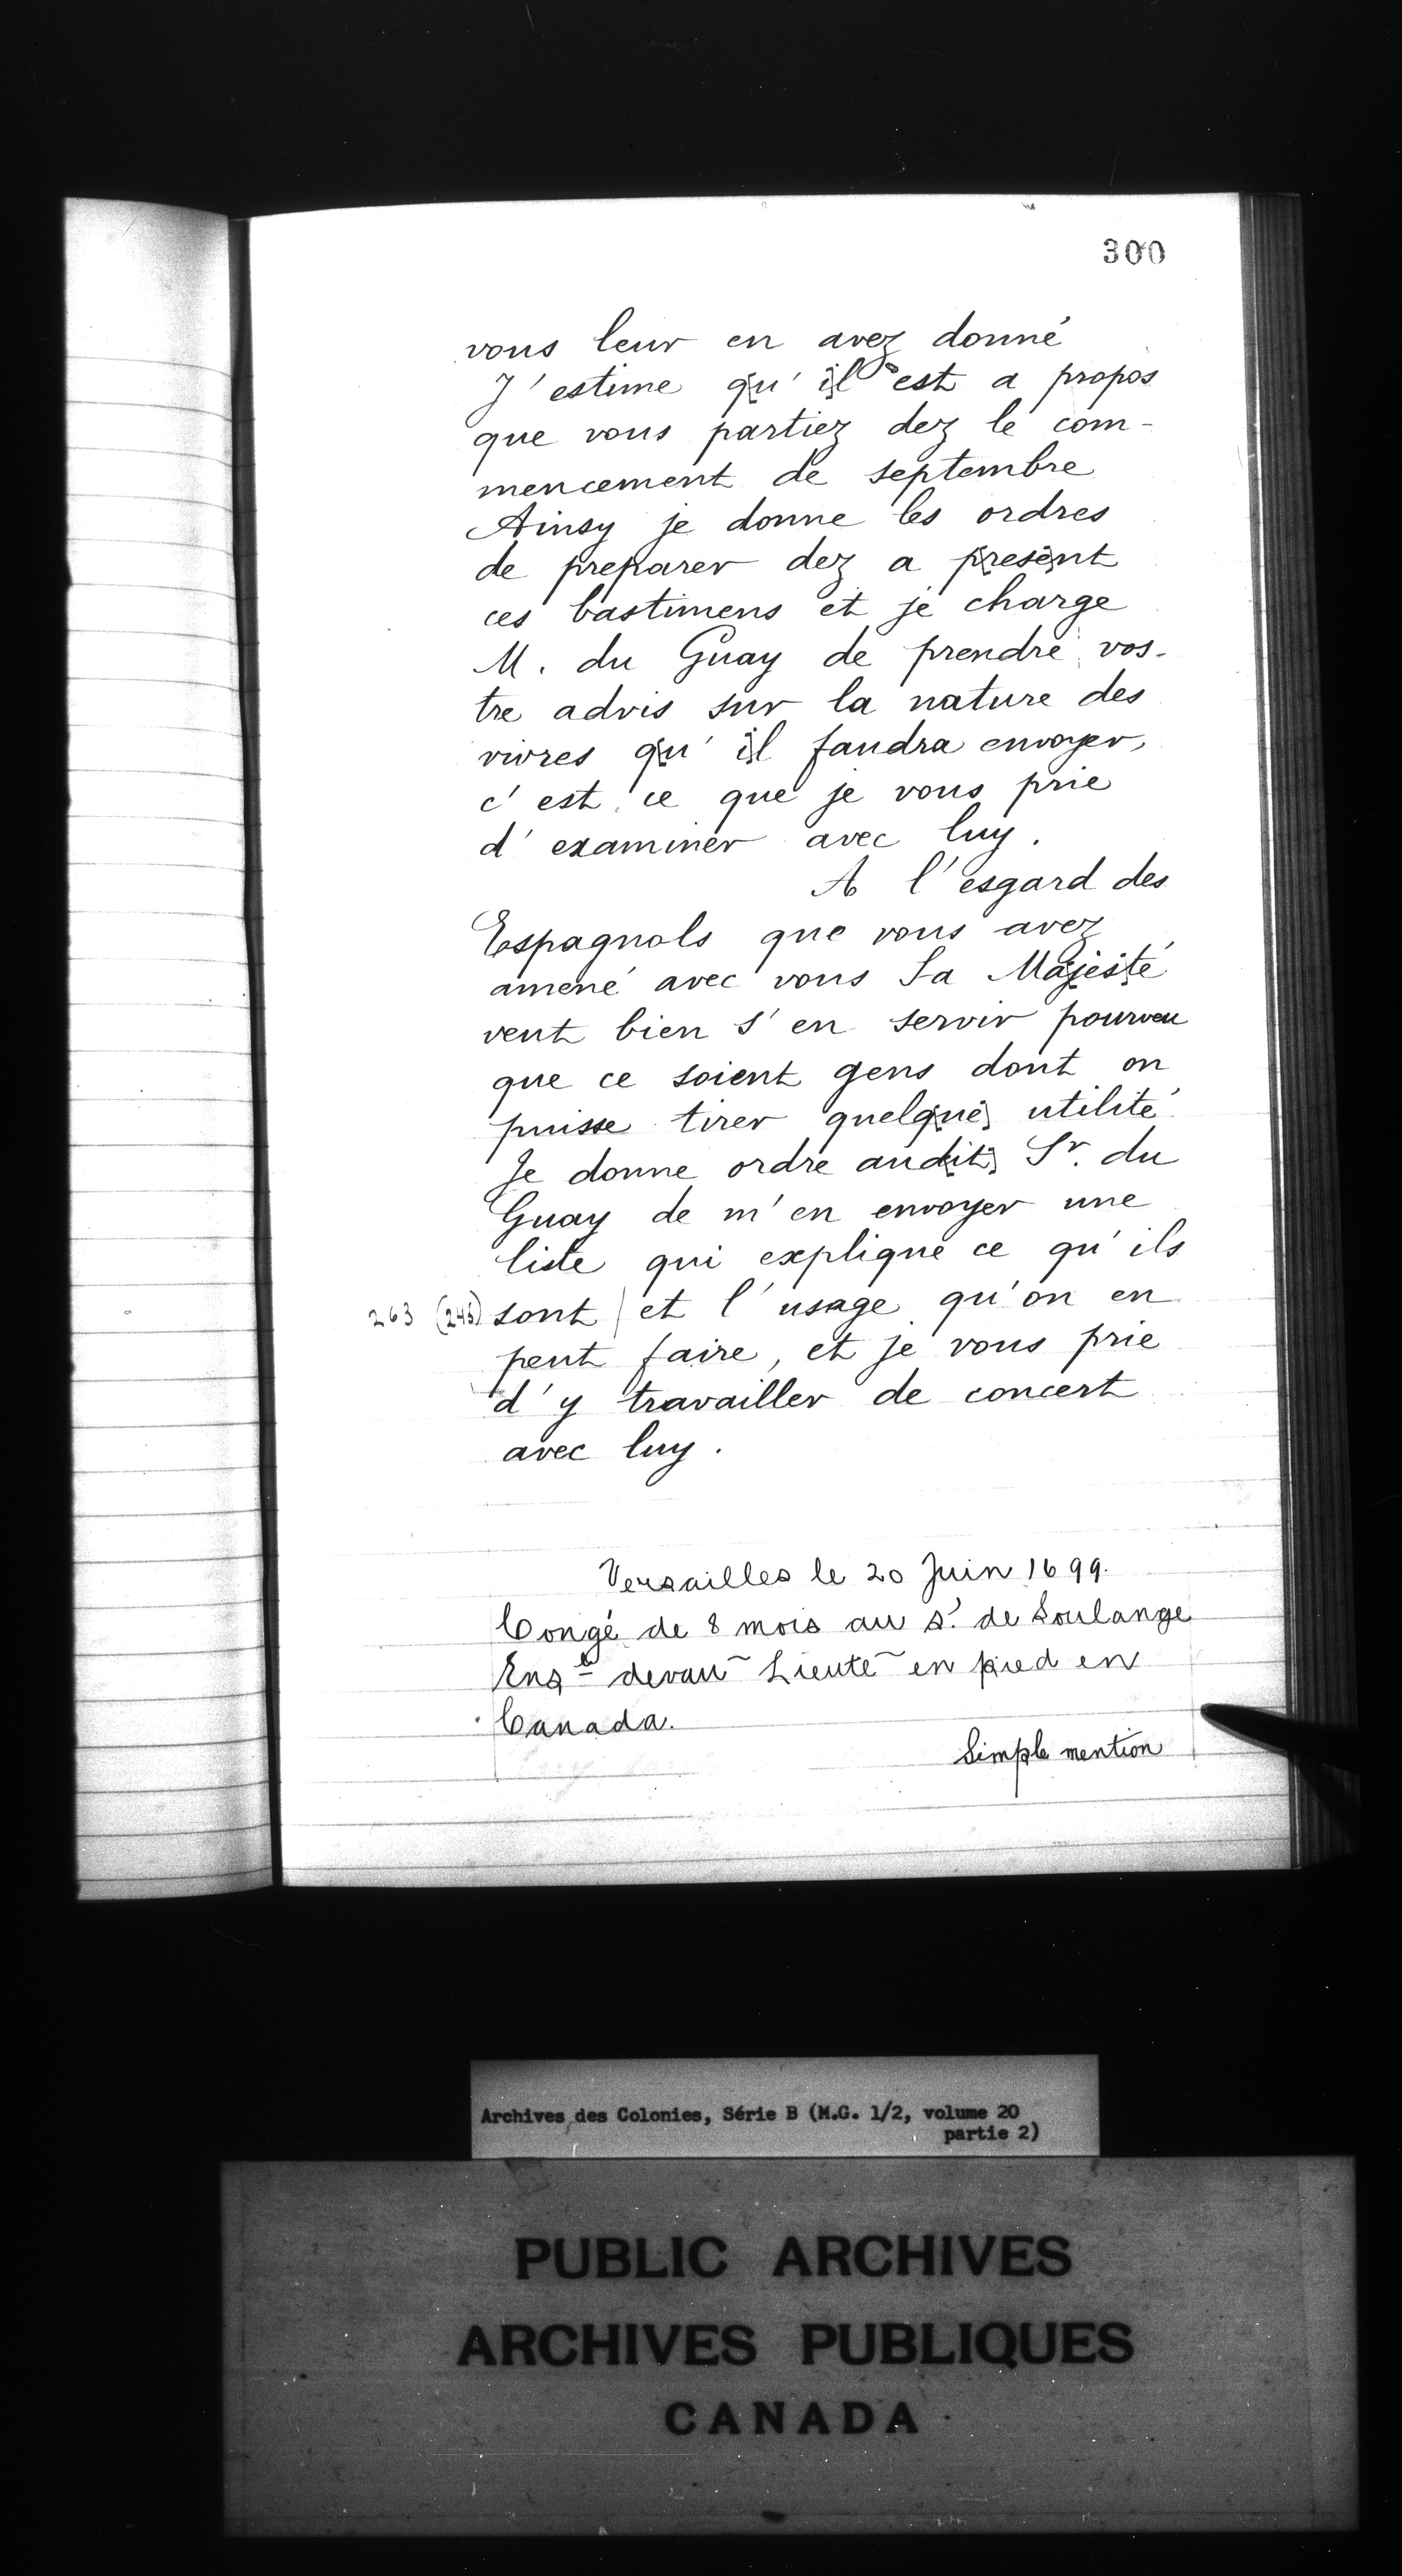 300
vous leur en avez donné
J'estime q[u]'[i]l est a propos
que vous partiez dez le com-
mencement de septembre
Ainsy je donne les ordres
de preparer dez a p[rese]nt
ces bastimens et je charge
M. du Guay de prendre vos-
tre advis sur la nature des
vivres q[u]'[i]l faudra envoyer,
c'est ce que je vous prie
d'examiner avec luy.
A l'esgard des
Espagnols que vous avez
amené avec vous Sa Ma[jes]té
veut bien s'en servir pourveu
que ce soient gens dont on
puisse tirer quelq[ue] utilité
Je donne ordre aud[it] Sr. du
Guay de m'en envoyer une
liste qui explique ce qu'ils
263 (245) sont / et l'usage qu'on en
peut faire, et je vous prie
d'y travailler de concert
avec luy.
Versailles le 20 Juin 1699.
Congé de 8 mois au s.r de Soulange
devau~ Lieute~ en pied en
Canada.
Simple mention
Archives des Colonies, Série B (M.G. 1/2, volume 20
partie 2)
PUBLIC ARCHIVES
ARCHIVES PUBLIQUES
CANADA